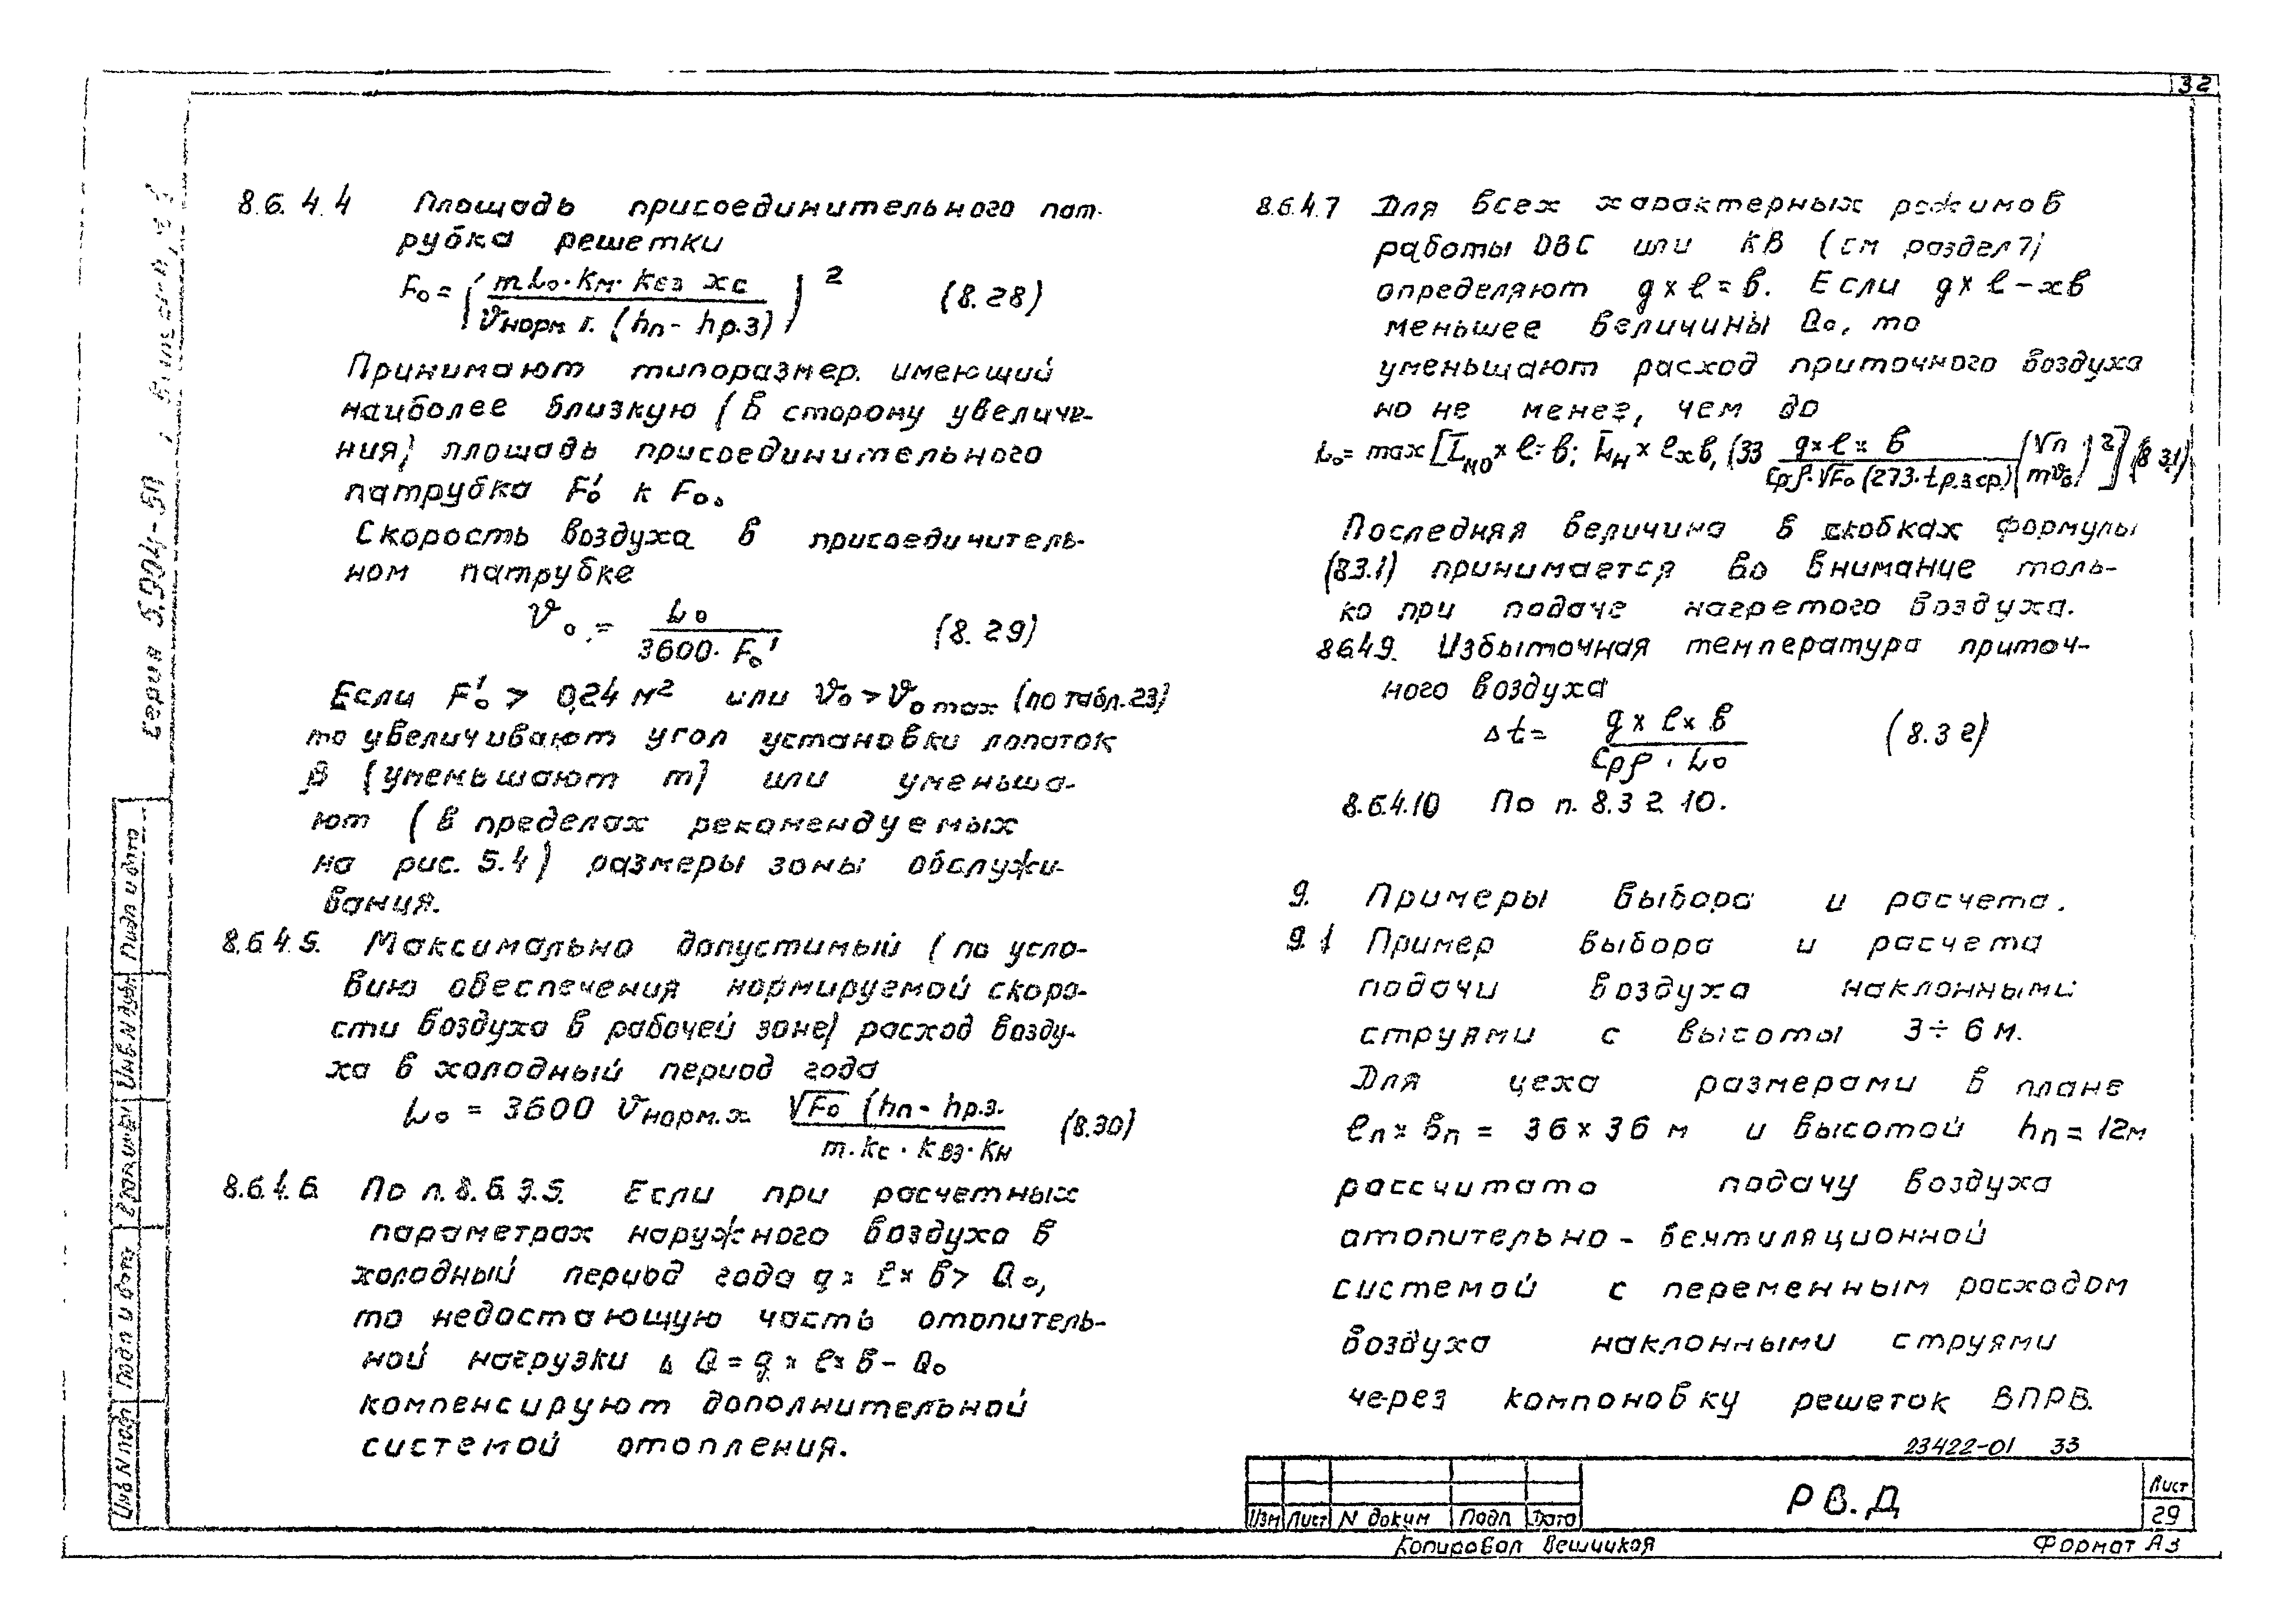 32
8.6.4.4 Площадь присоединительного пат-
рубка решетки
F₀ = ( m L₀ · Kм · Kвз x c / vнорм г. (hп - hр.з) )² (8.28)
Принимают типоразмер, имеющий
наиболее близкую (в сторону увеличе-
ния) площадь присоединительного
патрубка F₀' к F₀.
Скорость воздуха в присоединитель-
ном патрубке
v₀ = L₀ / 3600 · F₀' (8.29)
Если F₀' > 0,24 м² или v₀ > v₀ max (по табл. 23)
то увеличивают угол установки лопаток
β (уменьшают m) или уменьша-
ют (в пределах рекомендуемых
на рис. 5.4) размеры зоны обслужи-
вания.
8.6.4.5. Максимально допустимый (по усло-
вию обеспечения нормируемой скоро-
сти воздуха в рабочей зоне) расход возду-
ха в холодный период года
L₀ = 3600 vнорм.х √F₀ (hп - hр.з. / m · Kс · Kвз · Kн (8.30)
8.6.4.6 По п. 8.6.3.5. Если при расчетных
параметрах наружного воздуха в
холодный период года q × ℓ × в > Q₀,
то недостающую часть отопитель-
ной нагрузки Δ Q = q × ℓ × в - Q₀
компенсируют дополнительной
системой отопления.
8.6.4.7 Для всех характерных режимов
работы ОВС или КВ (см раздел 7)
определяют q × ℓ = в. Если q × ℓ - xв
меньшее величины Q₀, то
уменьшают расход приточного воздуха
но не менее, чем до
L₀ = max [L̄мо × ℓ × в; L̄н × ℓ × в, (33 q × ℓ × в / Cpρ · √F₀ (273 · tр.з ср) (√п / m v₀)²] (8.31)
Последняя величина в скобках формулы
(8.3.1) принимается во внимание толь-
ко при подаче нагретого воздуха.
8.6.4.9. Избыточная температура приточ-
ного воздуха
Δt = q × ℓ × в / Cpρ · L₀ (8.32)
8.6.4.10 По п. 8.3 2 10.
9. Примеры выбора и расчета.
9.1 Пример выбора и расчета
подачи воздуха наклонными
струями с высоты 3÷6 м.
Для цеха размерами в плане
ℓп × вп = 36 × 36 м и высотой hп = 12м
рассчитать подачу воздуха
отопительно-вентиляционной
системой с переменным расходом
воздуха наклонными струями
через компоновку решеток ВПРВ.
23422-01 33
Изм Лист N докум Подп Дата
РВ.Д
Лист
29
Копировал Вешчикая
Формат А3
серия 5.904-50
Подп и дата
Инв.N дубл
Взам.инв
Подп и дата
Инв N подл